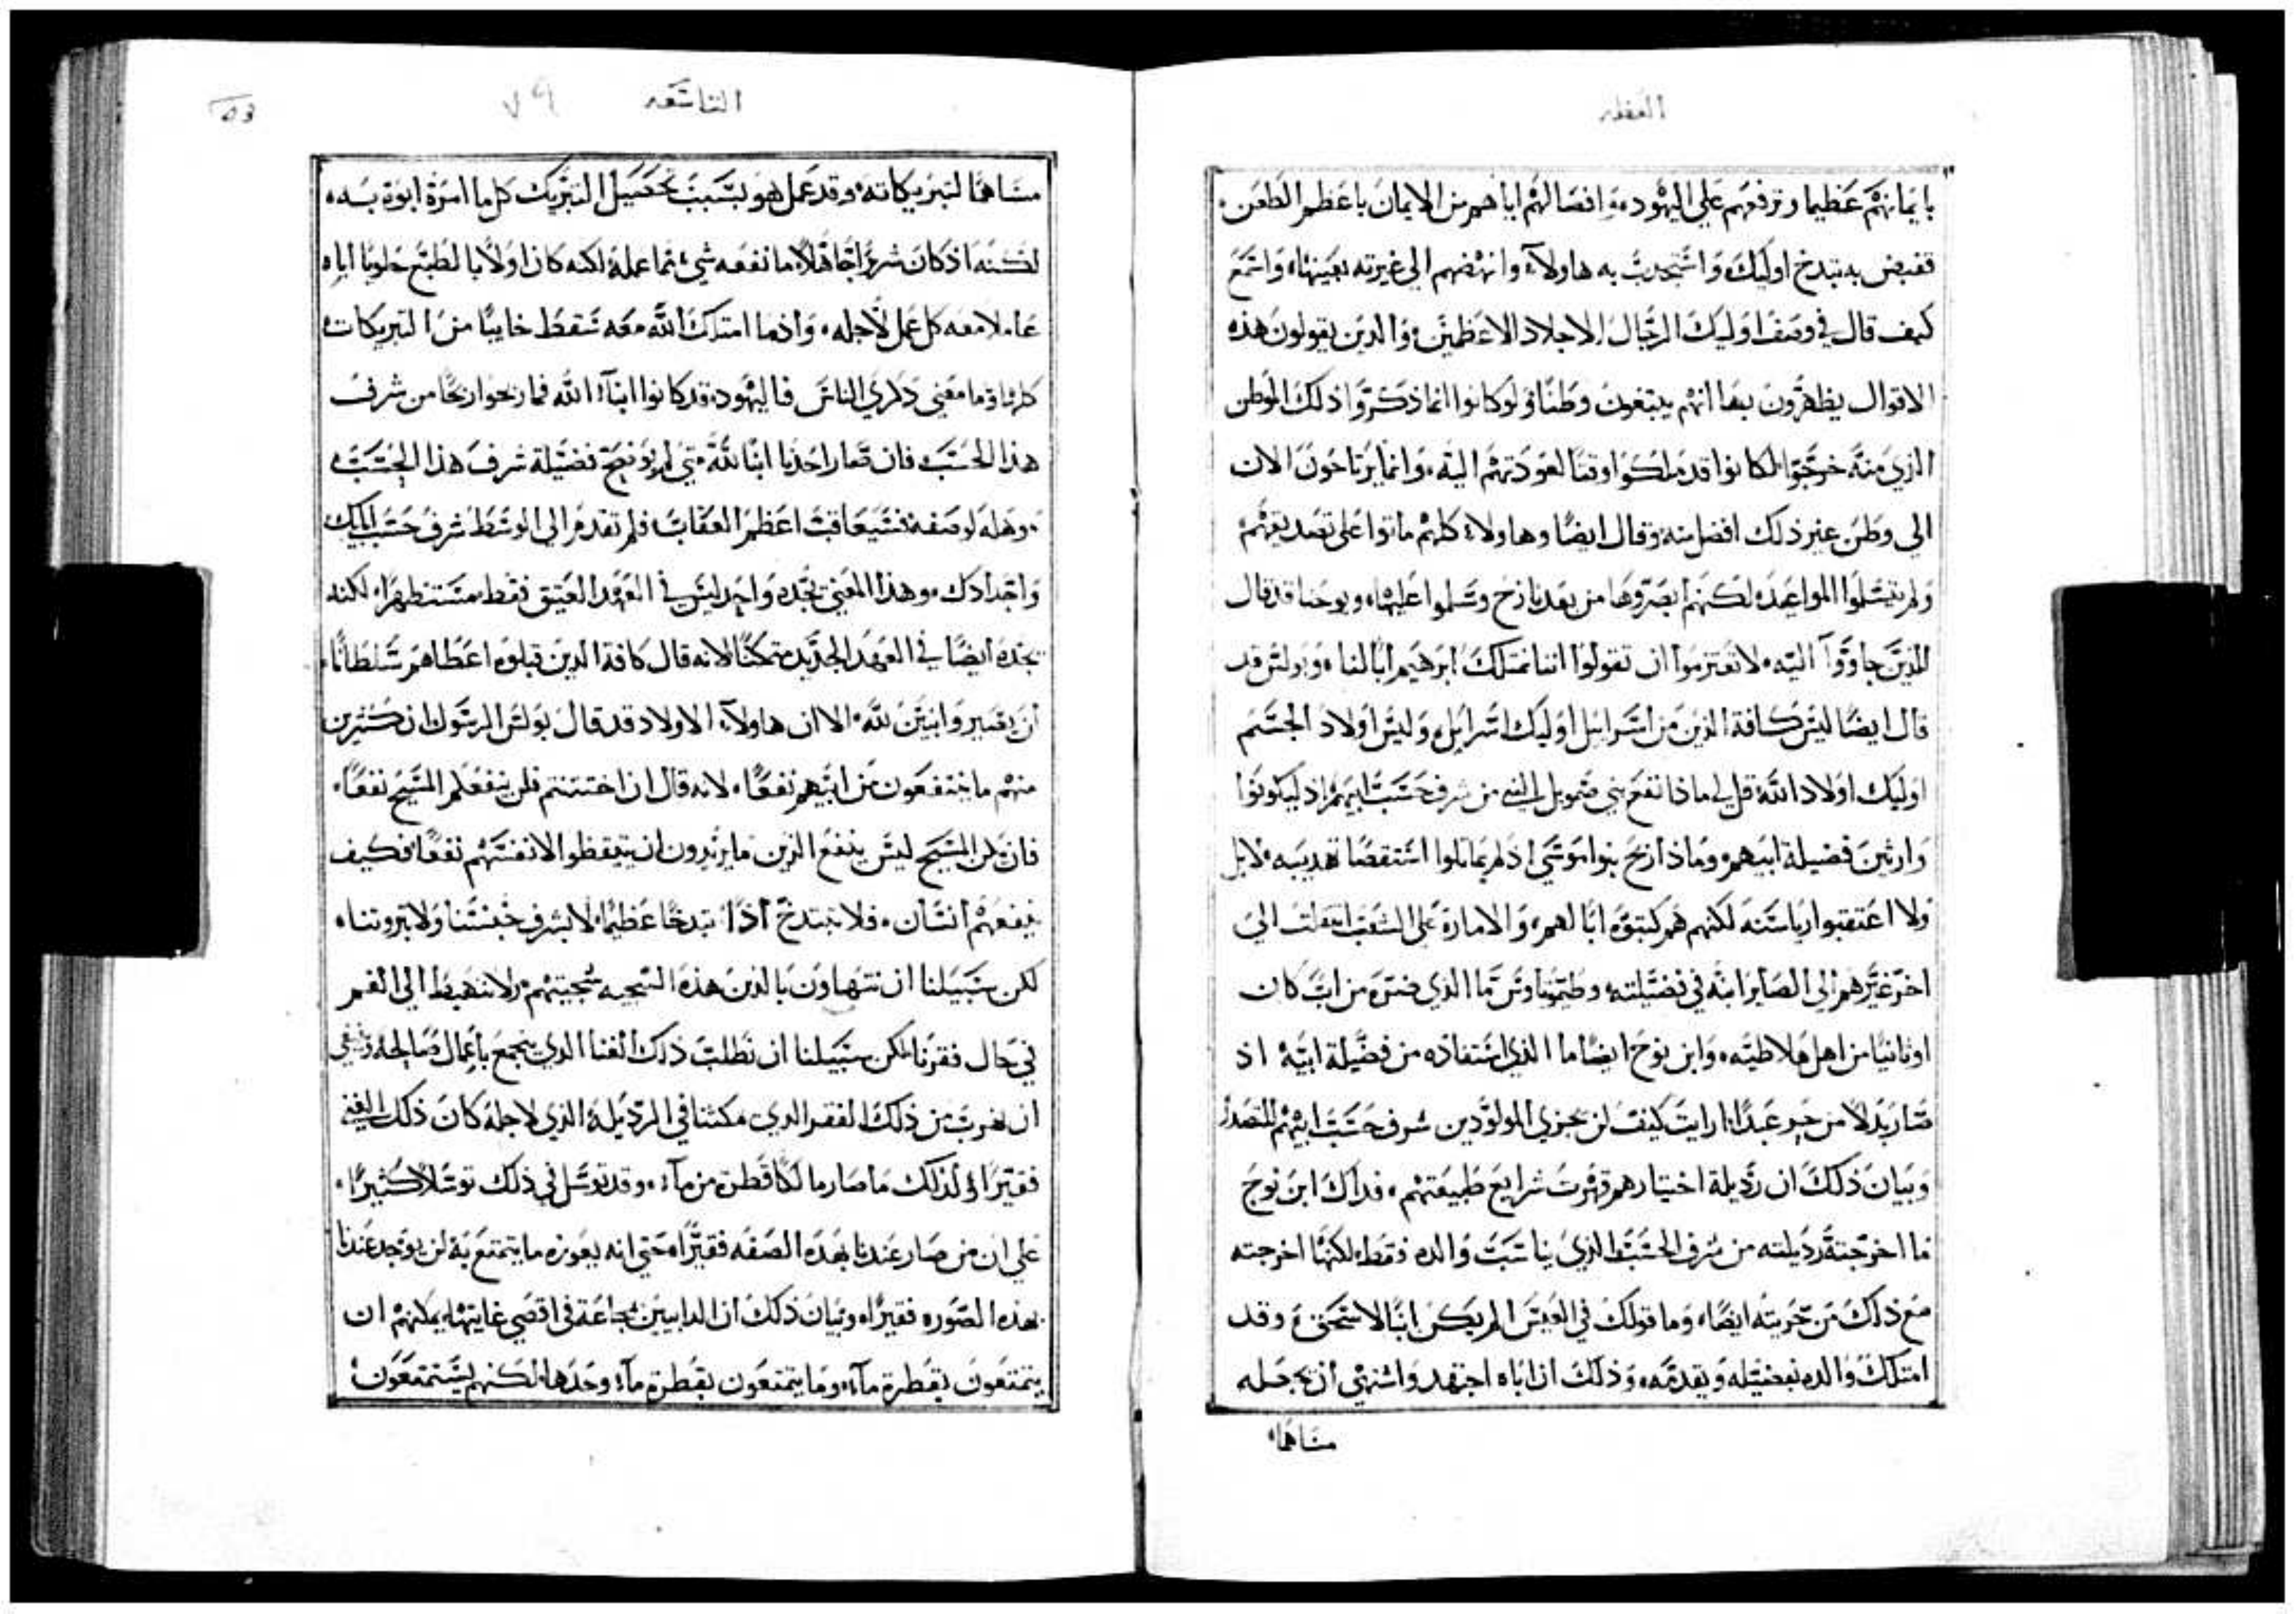 العظه
بايمانهم عظيما وترفعهم علي اليهود، وافصالهم اياهم من الايمان باعظم الطعن.
فقبض به تبدخ اوليك، واستجدب به هاولآء وانهضهم الي غيرته بعينها، واسمع
كيف قال في وصف اوليك الرجال الاجلاد الاعظمين، والدين يقولون هذه
الاقوال يظهرون بها انهم يبتغون وطنًا، ولو كانوا انما ذكروا ذلك الوطن
الزي منه خرجوا لكانوا قد ملكوا وقتا لعودتهم اليه، وانما يرتاحون الان
الي وطن غير ذلك افضل منه، وقال ايضًا وهاولاء كلهم ماتوا علي تصديقهم
ولم يتسلموا المواعيد، لكنهم ابصروها من بعد نازح وسلموا عليها، ويوحنا قد قال
للذين جاووا اليه، لا تعتزموا ان تقولوا اننا نمتلك ابرهيم ابًا لنا، وبولس قد
قال ايضًا ليس كافة الذين من اسرايل اوليك اسرايل، وليس اولاد الجسم
اوليك اولاد الله، قل لي ماذا نفع بني صمويل النبي من شرف حسب ابيهم، اذ لم يكونوا
وارثين فضيلة ابيهم، وماذا ربح بنوا موسي اذ لم يماثلوا استقصا تهديبه، لا بل
ولا اعتقبوا رياسته لكنهم هم كتبوه ابًا لهم، والامارة علي الشعب انتقلت الي
اخر غيرهم الي الصاير ابنه في فضيلته، وطيموثاوس ما الذي ضره من اب كان
اوثانيًا من اهل هلاطيه، وابن نوح ايضًا ما الذي استفاده من فضيلة ابيه اذ
صار بدلًا من حر عبدًا، ارايت كيف لن يجزي المولودين شرف حسب ابيهم للتصدر
وبيان ذلك ان رديلة اختيارهم قهرت شرايع طبيعتهم، فداك ابن نوح
ما اخرجته رديلته من شرف الحسب الذي يناسب والده فقط، لكنها اخرجته
مع ذلك من حريته ايضًا، وما قولك في العيس الم يكن ابنًا لاسحق، وقد
امتلك والده بفضيله ويقدمه، وذلك ان اباه اجتهد واشتهي ان يجعله
مساهمًا
التاسعه
٧٩
53
مساهمًا لتبريكاته، وقد عمل هو بسبب تحصيل التبريك كل ما امره ابوه به،
لكنه اذ كان شريرًا جاهلًا، ما نفعه شيء مما عمله، لكنه كان اولًا بالطبع
عاملا معه كل عمل لاجله، واذما امتلك الله معه سقط خايبًا من التبريكات
كلها، وما معني دكري الناس فاليهود قد كانوا ابنآء الله فما ربحوا ربحًا من شرف
هذا الحسب، فان صار احدنا ابنًا لله متي لم يوضح فضيلة شرف هذا الحسب
وهله لوصفه فسيعاقب اعظم العقاب، فلم تقدم الي الوسط شرف حسب ابايك
واجدادك، وهذا المعني تجده واجد ليس في العهد العتيق فقط مستظهرًا، لكنه
تجده ايضًا في العهد الجديد متمكنًا، لانه قال كافة الدين قبلوه اعطاهم سلطانًا
ان يصيروا بنين لله، الا ان هاولآء الاولاد قد قال بولس الرسول ان كثيرين
منهم ما ينتفعون من ابيهم نفعًا، لانه قال ان اختتنتم فلن ينفعكم المسيح نفعًا،
فان يكن المسيح ليس ينفع الزين ما يريدون ان يتيقظوا لانفسهم نفعًا فكيف
ينفعهم انسان، فلا نتبدخ اذًا تبدخًا عظيمًا، لا بشرف جنسنا ولا بثروتنا،
لكن سبيلنا ان نتهاون بالدين هذه السجيه سجيتهم، ولا نهبط الي الغم
في حال فقرنا لكن سبيلنا ان نطلب ذلك الغنا الدي يجمع باعمال صالحه
ان نهرب من ذلك الفقر الدي مكثنا في الرديله، الذي لاجله كان ذلك الغني
فقيرًا، ولذلك ما صار مالكًا قطره من مآء، وقد توسل في ذلك توسلًا كثيرًا،
علي ان من صار عندنا بهده الصفه فقيرًا، حتي انه يعوزه ما يتمتع به لن يوجد عندنا
بهذه الصوره فقيرًا، وبيان ذلك ان الدايبين مجاعة في اقصي غايتها، يمكنهم ان
يتمتعون بقطرة مآء، وما يتمتعون بقطرة مآء وحدها، لكنهم يستمتعون